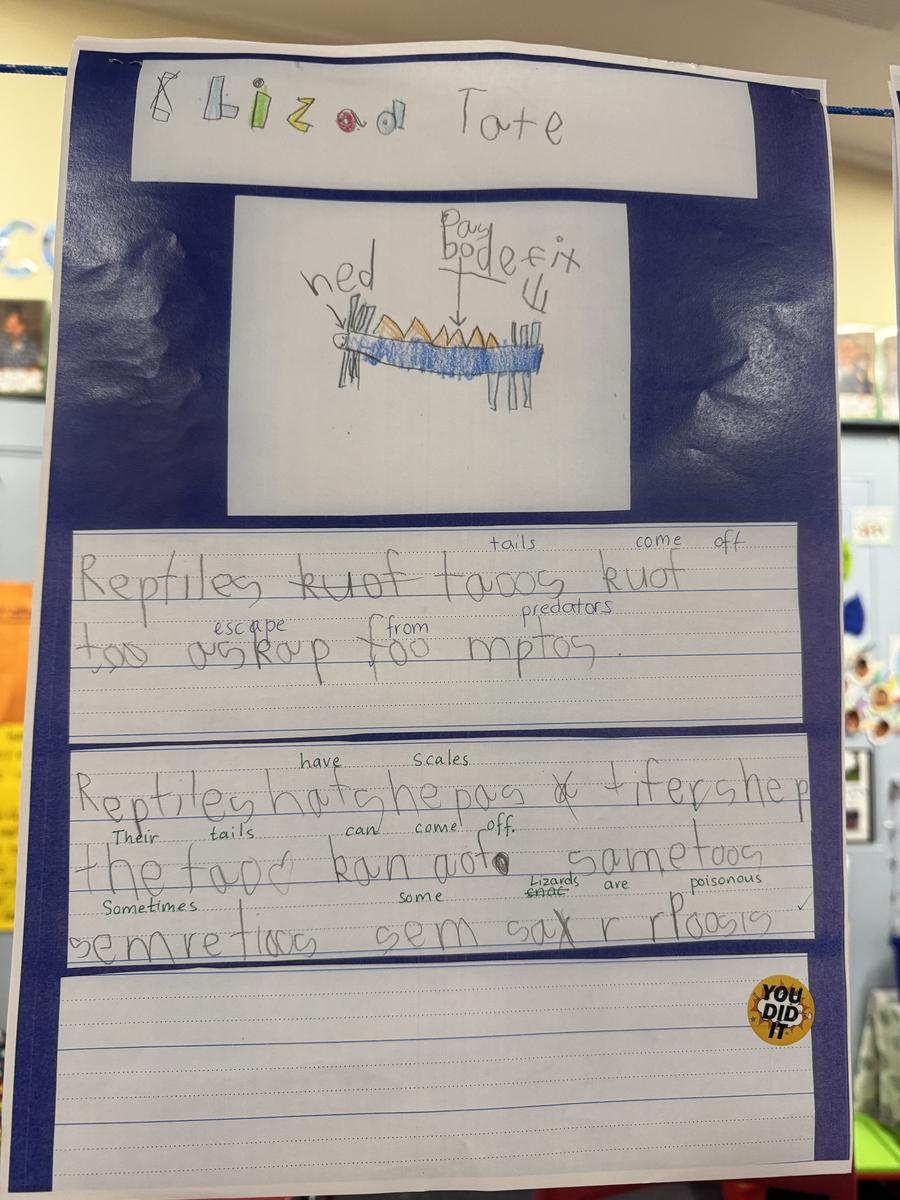 Lizad Tate
Pay
bode
fix
hed
tails come off
Reptiles kuof taoos kuof
escape from predators
too askap foo mptos.
have scales
Reptiles hatshepas x tifershep
Their tails can come off.
the taod kan aof sametoos
Sometimes some Lizards are poisonous
enac
semretioos sem sax r rPoosis
YOU
DID
IT